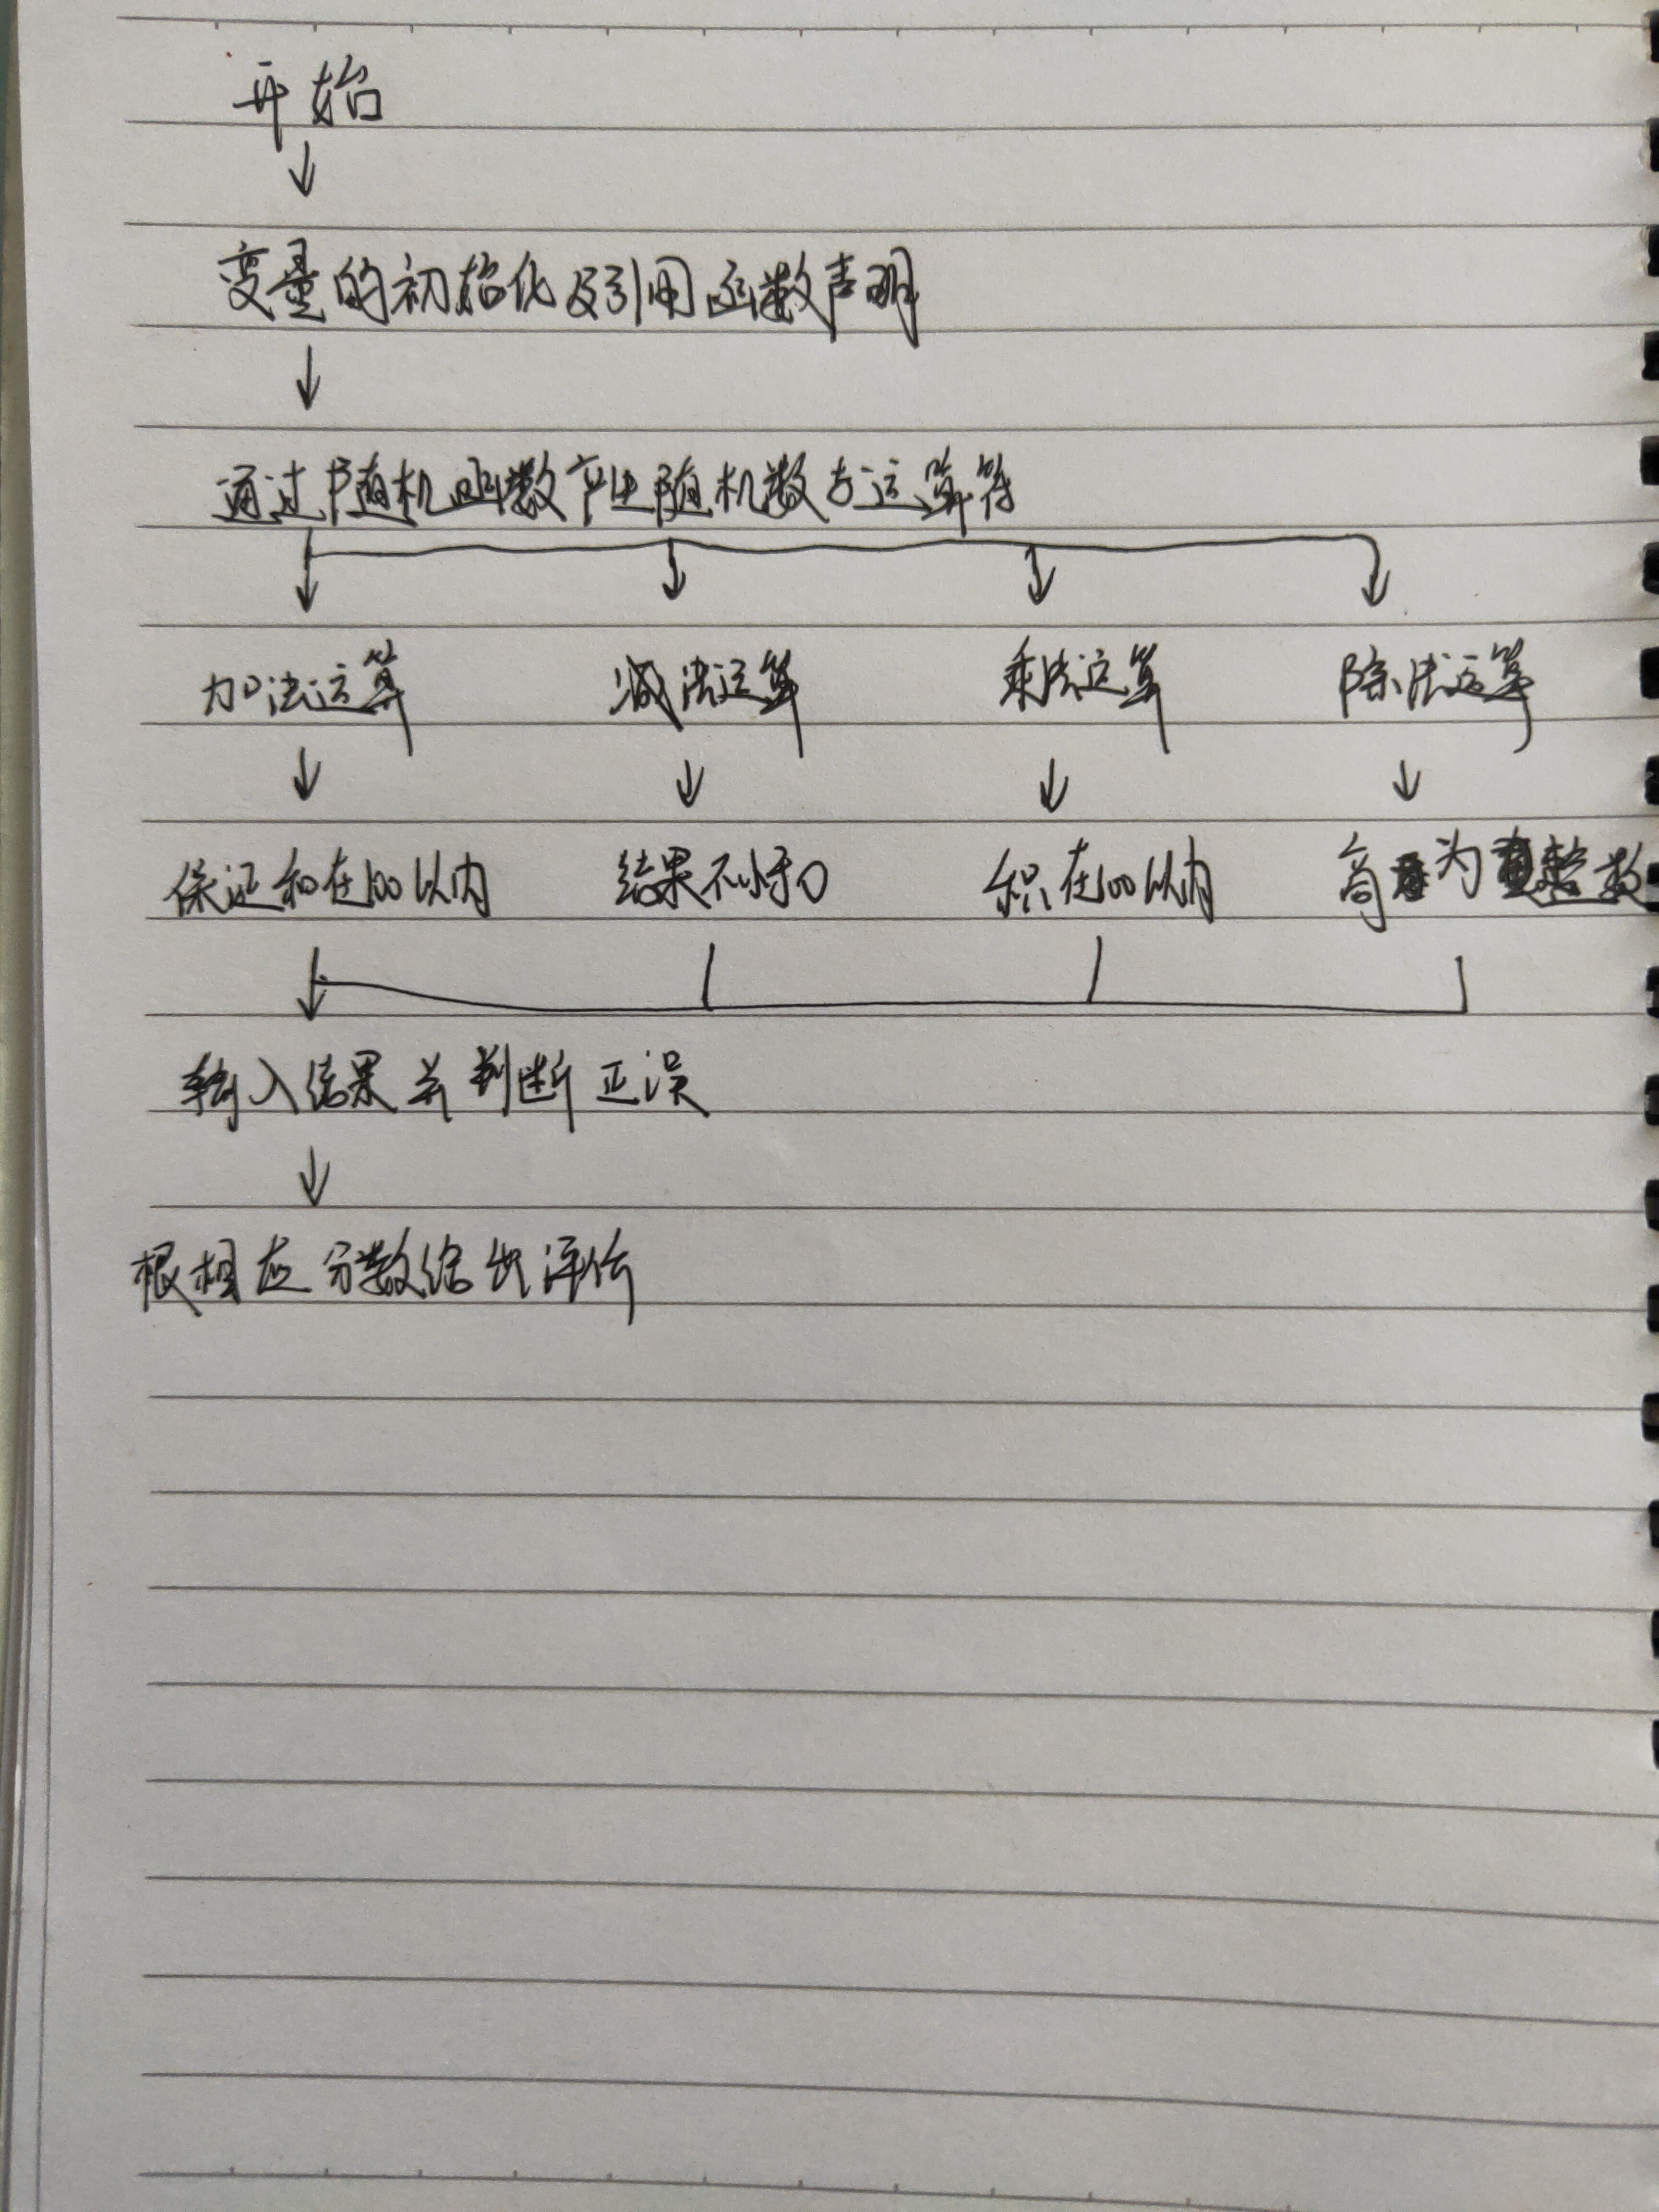 开始
变量的初始化及引用函数声明
通过随机函数产生随机数与运算符
加法运算 减法运算 乘法运算 除法运算
保证和在100以内 结果不小于0 积在100以内 商为整数
输入结果并判断正误
根相应分数给出评价